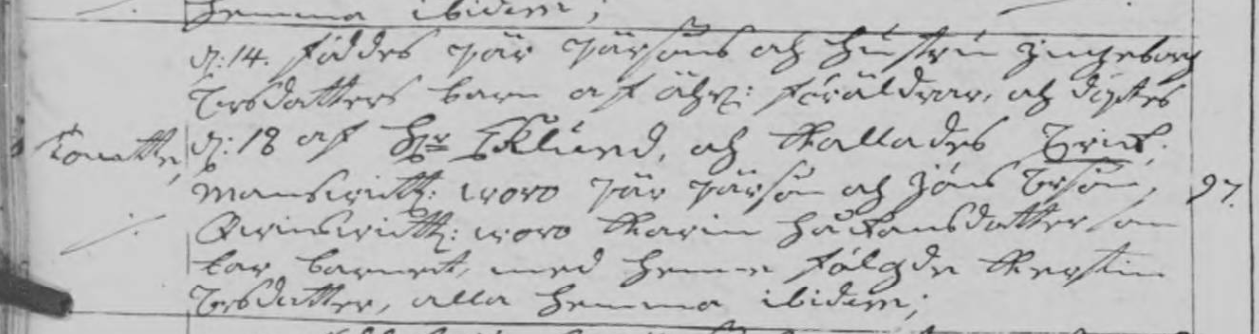 hemma ibidem;
d: 14. föddes pär pärsöns och hustru Jngeborg
Ersdatters barn af ähr: föräldrar, och döptes
d: 18 af Hr Eklund, och kallades Erik;
Manswittn: woro pär pärsön och Jöns Ersön,
Qwinswittn: woro Karin Håkansdatter som
bar barnet, med henne följde Kerstin
Ersdatter, alla hemma ibidem;
97.